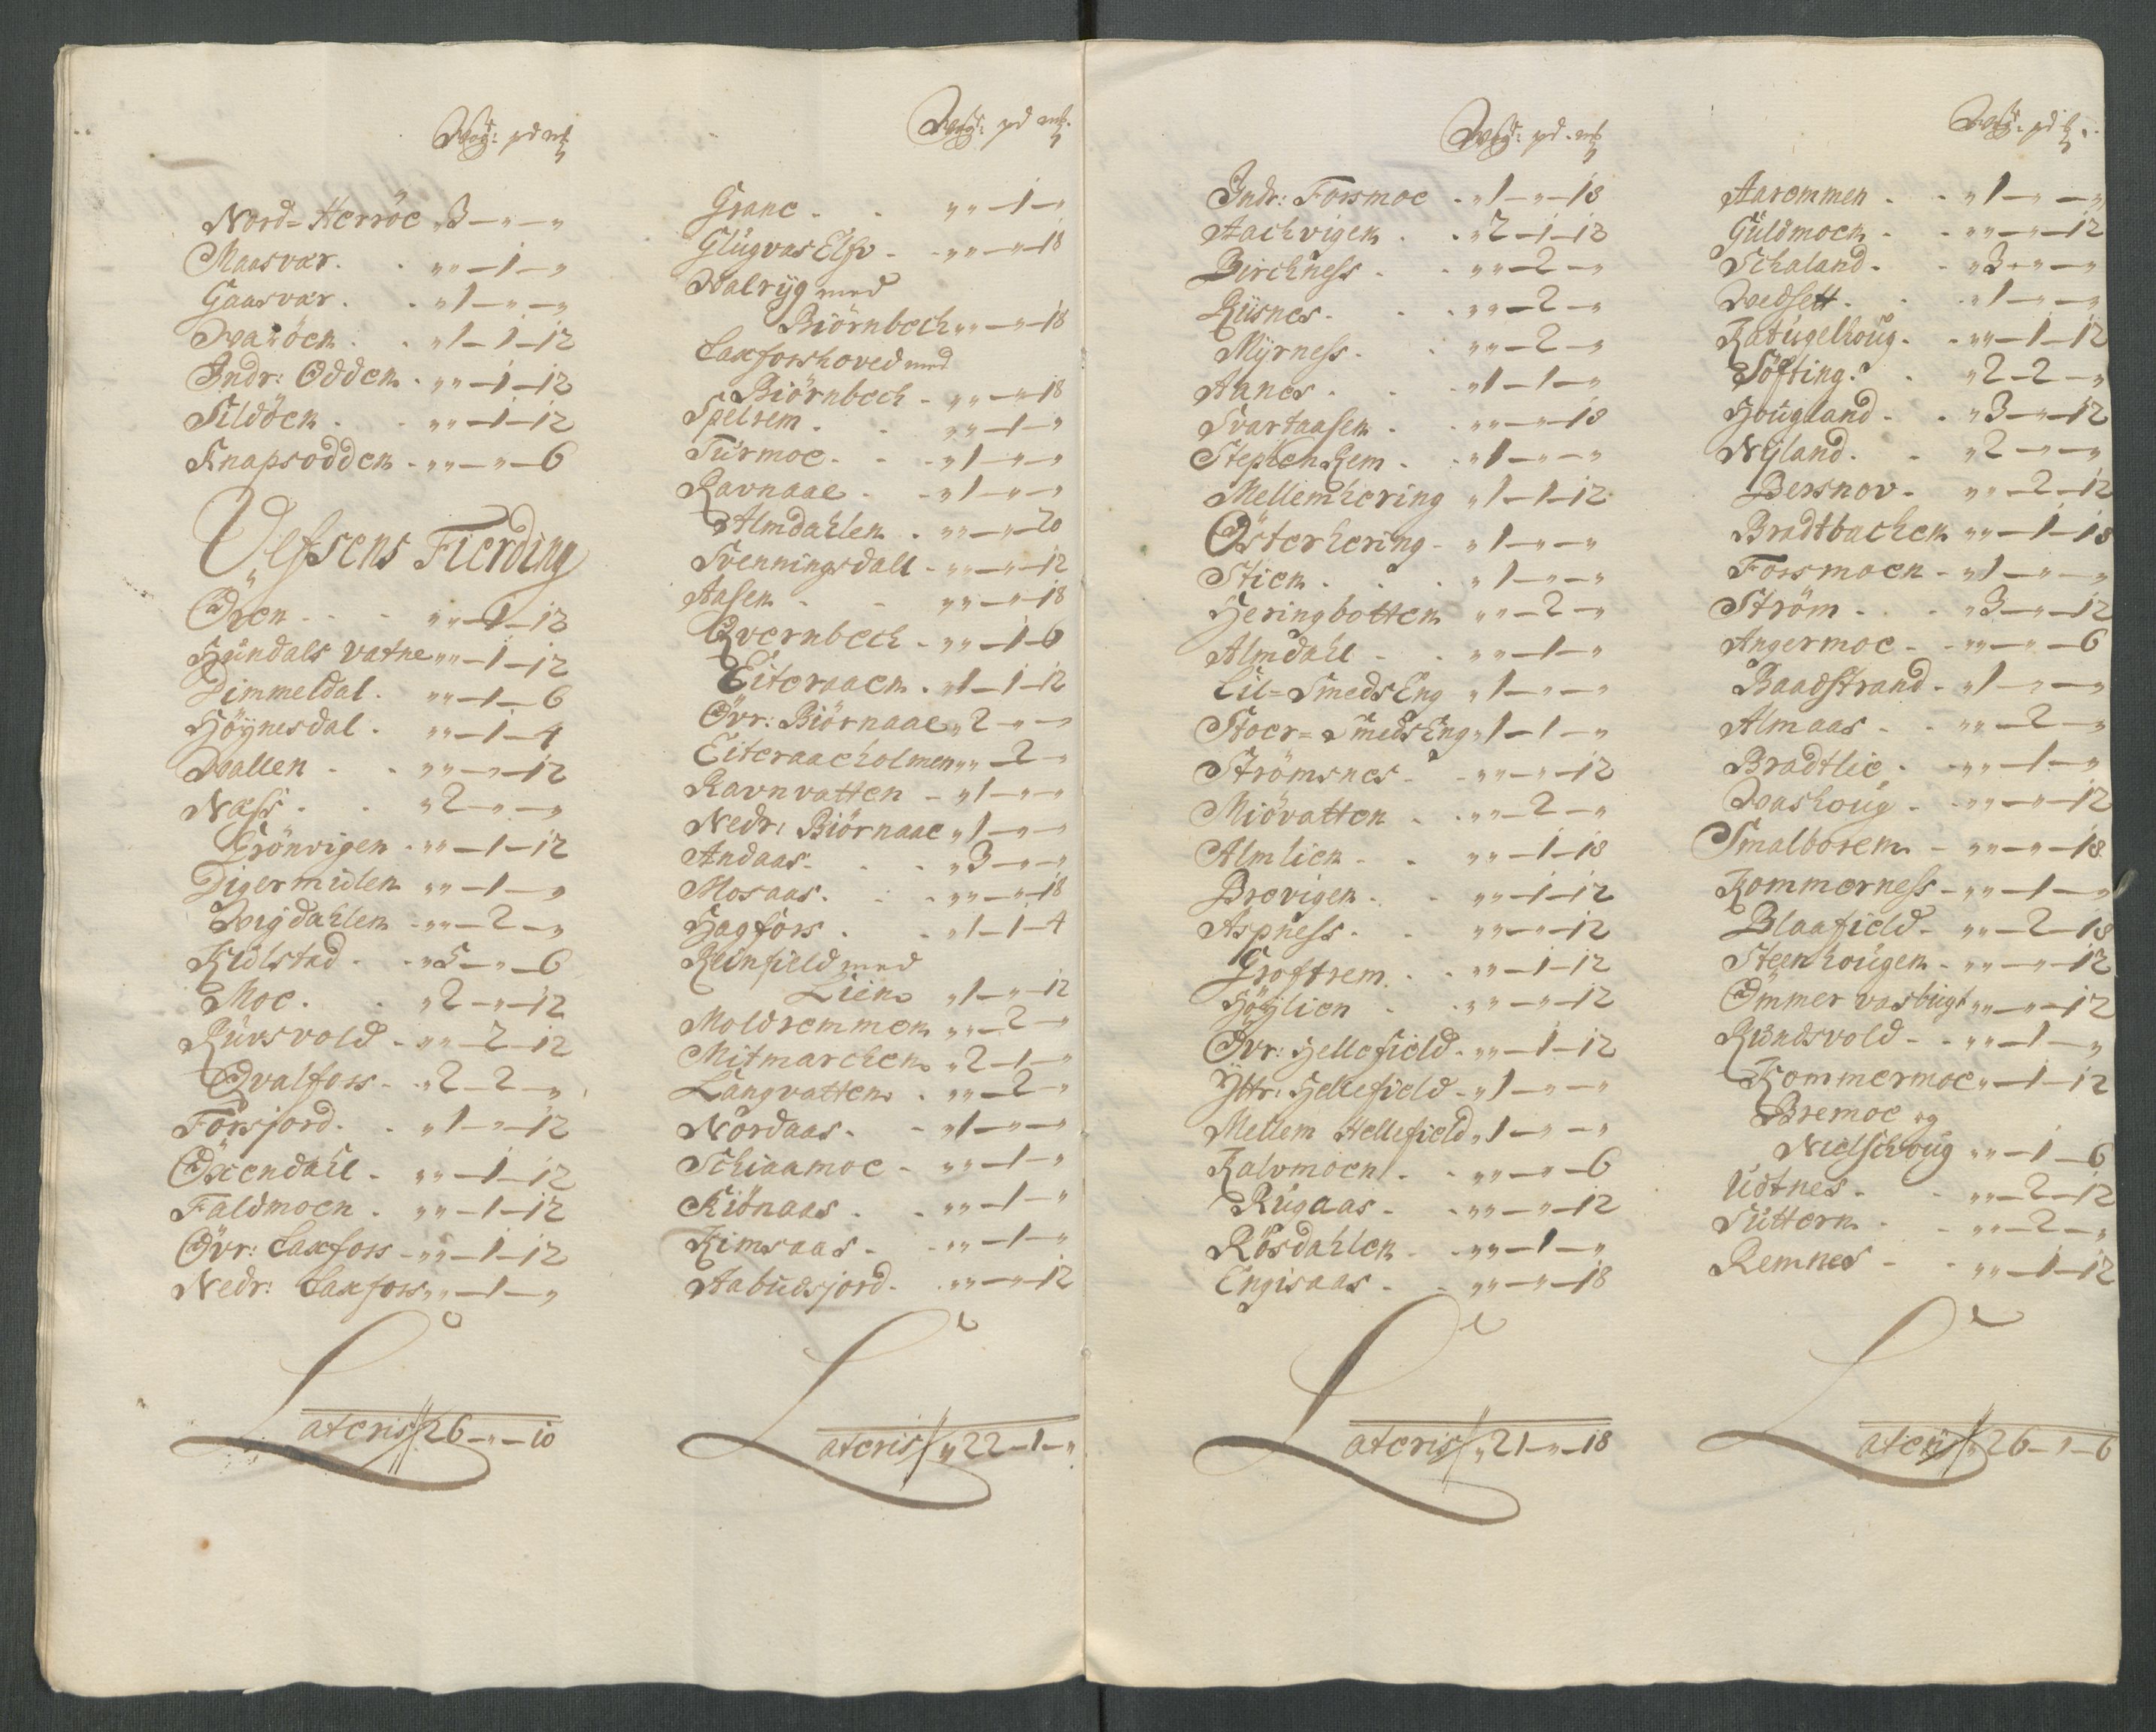 Wog: pd mk
Nord=Herröe „3-„-„
Maasvær. . „„-1-„
Gaasvær. . „1-„-„
Waröen . . „1-1-12
Indr: Odden. „„-1-12
Sildöen . . „„-1-12
Knapsodden - „„-„-6
Vefsens Fierding
Öxen - - - „„-1-13
Hundals vatne „„-1-12
Dimmeldal. „„-1-6
Höÿnesdal. „„-1-4
Wallen . . „„-„-12
Næss. . „2-„-„
Grönvigen - „„-1-12
Digermulen „„-1-„
Wigdahlen - „„-2-„
Kulstad - - „5-„-6
Moe. . „2-„-12
Rüvsvold - „„-2-12
Qvalfoss - - „2-2-„
Forsjord. . „1-„-12
Öxendahl - „„-1-12
Faldmoen . „„-1-12
Övr: Laxfoss - „„-1-12
Nedr: Laxfoss „„-1-„
Lateris 26-„-10
Wog: pd mk.
Grane - . „„-1-„
Glugvas Elfv - - „„-„-18
Walrÿg med
Biörnbech „„-„-18
Laxforshoved med
Biörnbech - „„-„-18
Spelrem . . „„-1-„
Turmoe. - - „1-„-„
Ravnaae . - „1-„-„
Almdahlen . „„-„-20
Svenningsdall - „„-„-12
Aasen - - „„-„-18
Qvernbech - „„-1-6
Eiteraaen . „1-1-12
Övr: Biörnaae „2-„-„
Eiteraaeholmen „„-2-„
Ravnvatten - „1-„-„
Nedr: Biörnaae „1-„-„
Andaas. . . „3-„-„
Mosaas. . . „„-„-18
Hagfors . . „1-1-4
Reinfield med
Lien „1-„-12
Moldremmen „„-2-„
Mitmarchen „2-1-„
Langvatten . „„-2-„
Nordaas. - „1-„-„
Schiaamoe - „„-1-„
Kiönaas . . „„-1-„
Kimsaas - . „„-1-„
Aabudsjord - . „„-„-12
Lateris „22-1-„
Wog: pd. mk
Indr: Forsmoe - „1-„-18
Aachvigen . . „2-1-12
Birchness . . „„-2-„
Rüsnes. . . „„-2-„
Mÿrness. . „„-2-„
Aanes . . „1-1-„
Svartaasen . . „„-„-18
Stephen Rem . „1-„-„
Mellemhering „1-1-12
Österhering - „1-„-„
Stien . . . „1-„-„
Heringbotten „„-2-„
Almdahl - . „„-1-„
Lil=Smeds Eng „1-„-„
Stoer=Smeds Eng „1-1-„
Strömsnes - - „„-„-12
Miövatten . . „„-2-„
Almlien - . „„-1-18
Brevigen . . „„-1-12
Aspness. . „„-„-12
Groftrem . . „„-1-12
Höÿlien . „„-„-12
Övr: Hellefield - „„-1-12
Ÿttr: Hellefield - „1-„-„
Mellem Hellefield „1-„-„
Kalvmoen . . „„-„-6
Rügaas - - „„-„-12
Rösdahlen - „„-1-„
Engisaas - - „„-„-18
Lateris „21-„-18
Aaremmen . - „1-„-„
Güldmoen - - „„-„-12
Schaland - - „3-„-„
Wedsett . . „1-„-„
Katugelhoug. . „„-1-12
Söfting. . „2-2-„
Hougland - . „3-„-12
Nÿland. . „2-„-„
Bersnov - „„-2-12
Bradtbachen „„-1-18
Forsmoen - „1-„-„
Ström . . - „3-„-12
Angermoe - - „„-„-6
Baadstrand - „1-„-„
Almaas - . „„-2-„
Bradtlie . - „„-1-„
Washoug - - „„-„-12
Smalborem - „„-„-18
Kommerness - „„-1-„
Blaafield - „„-2-18
Steenhougen - „„-„-12
Ömmer vasbugt „„-„-12
Rundsvold - - „„-1-„
Kommermoe „-1-12
Bremoe og
Nielschoug „„-1-6
Udtnes - . „„-2-12
Suttern . . „„-2-„
Remnes - - „„-1-12
Lateris „26-„-6